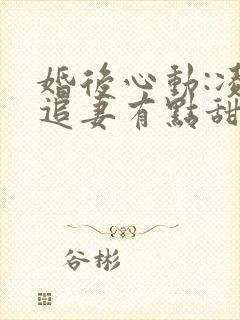 婚後心動:凌
追妻有點甜
谷彬